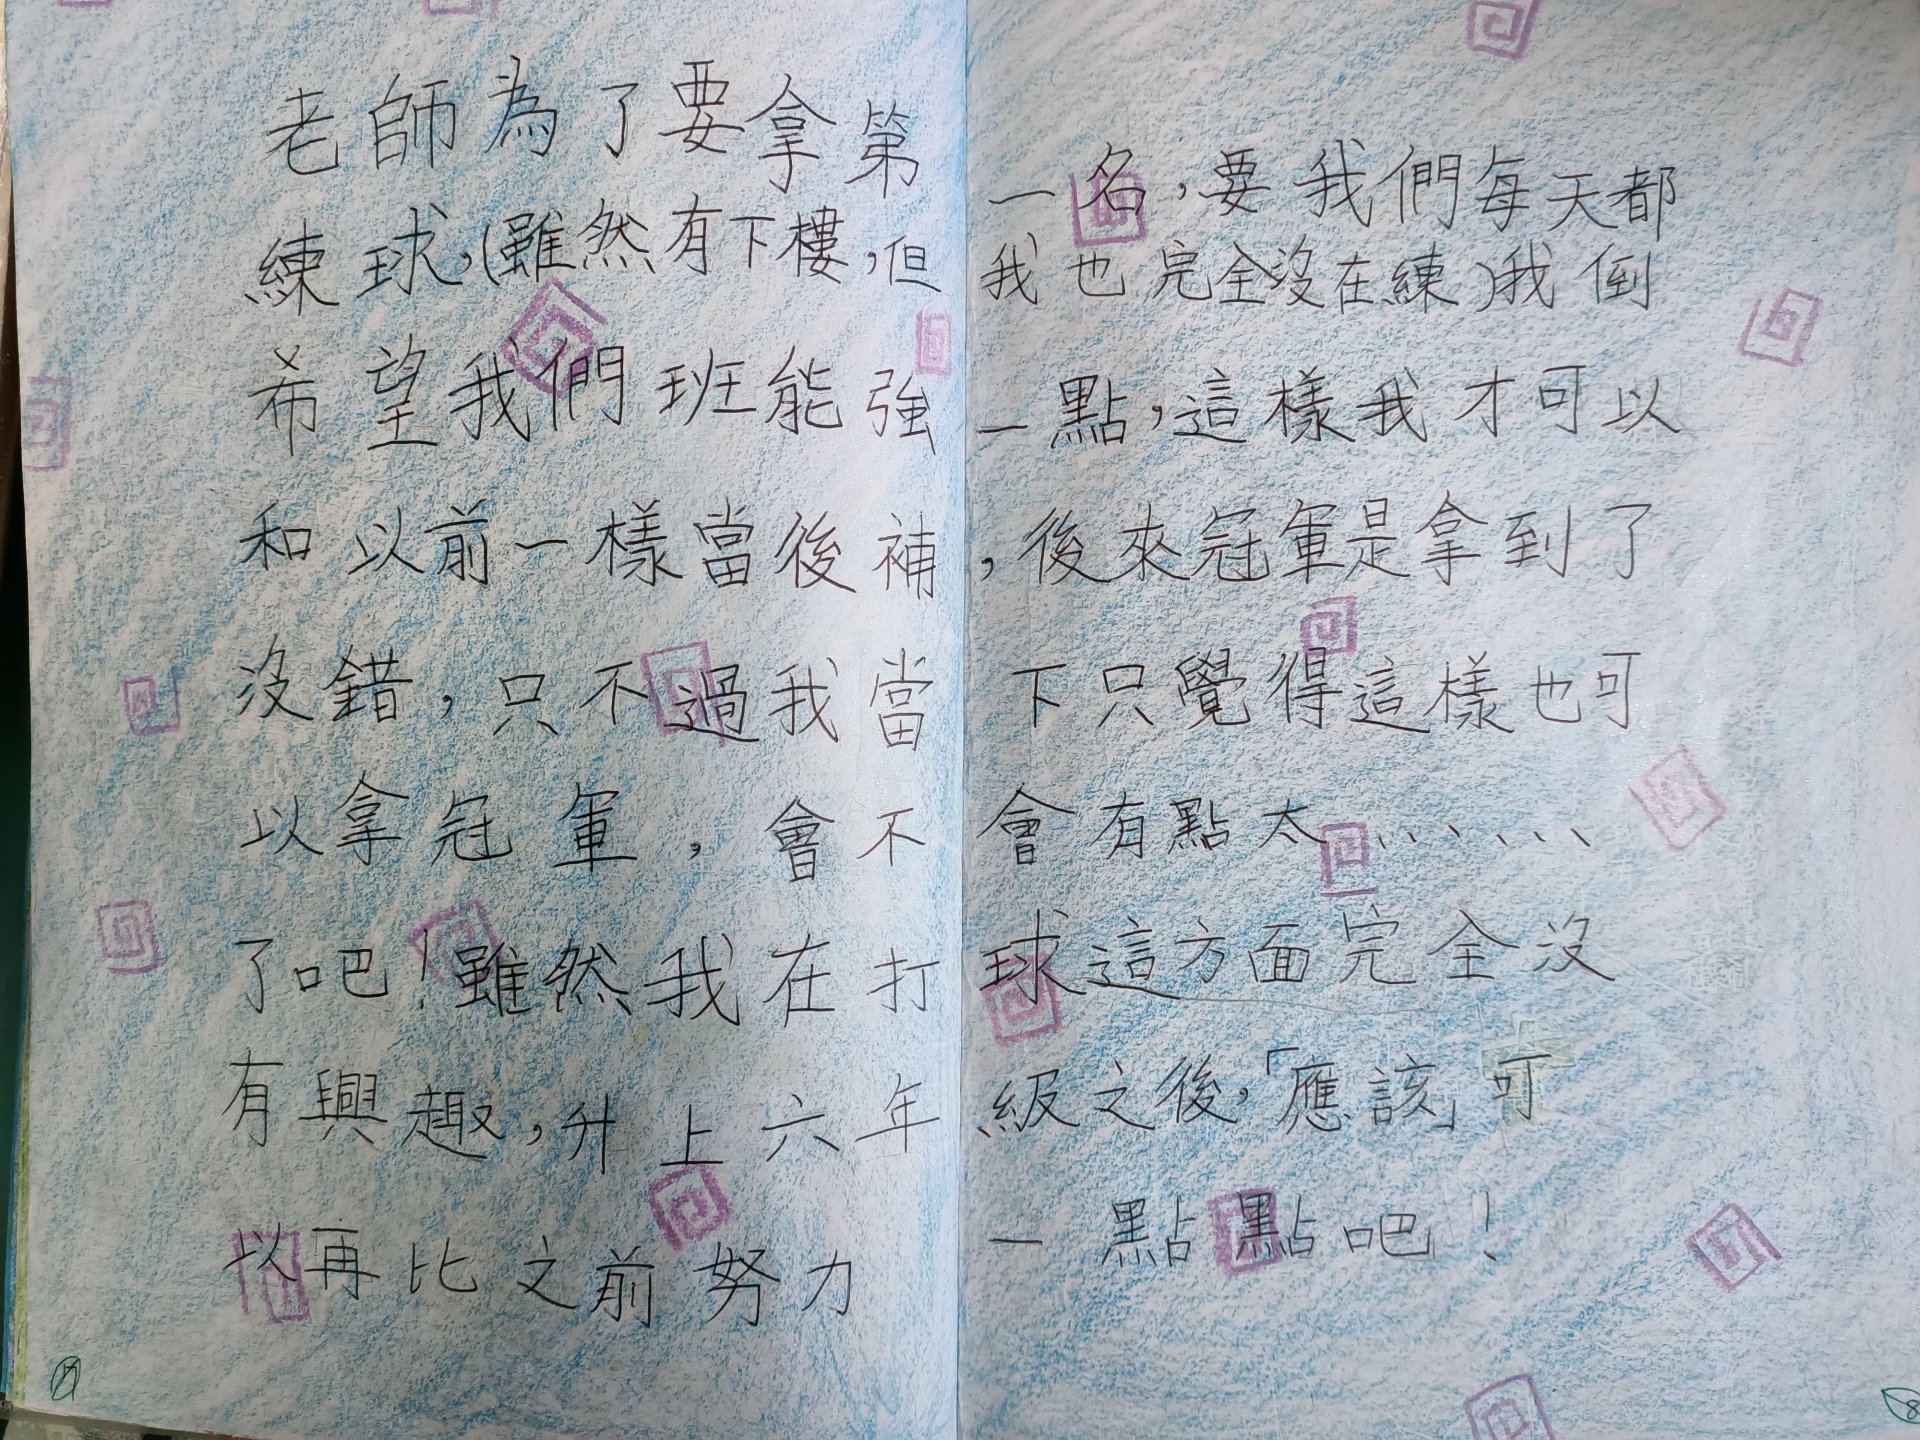 老師為了要拿第一名，要我們每天都
練球，(雖然有下樓，但我也完全沒在練)我倒
希望我們班能強一點，這樣我才可以
和以前一樣當後補，後來冠軍是拿到了
沒錯，只不過我當下只覺得這樣也可
以拿冠軍，會不會有點太、、、、、、
了吧！雖然我在打球這方面完全沒
有興趣，升上六年級之後，「應該」可
以再比之前努力一點點吧！
8